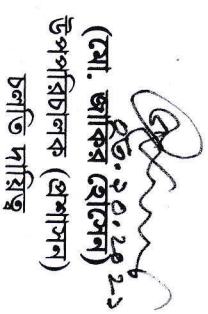 ২৩.১০.২০২১
(মো. জাকির হোসেন)
উপপরিচালক (প্রশাসন)
চলতি দায়িত্ব